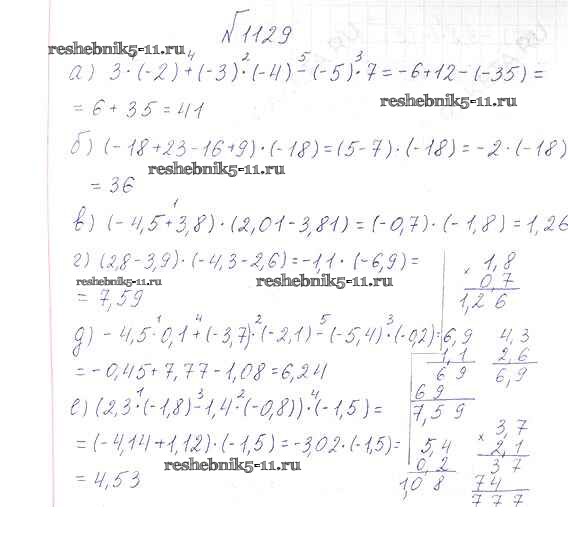 №1129
reshebnik5-11.ru
а) 3·(-2)+(-3)·(-4)-(-5)·7=-6+12-(-35)=
reshebnik5-11.ru
=6+35=41
б) (-18+23-16+9)·(-18)=(5-7)·(-18)=-2·(-18)
reshebnik5-11.ru
=36
в) (-4,5+3,8)·(2,01-3,81)=(-0,7)·(-1,8)=1,26
г) (2,8-3,9)·(-4,3-2,6)=-1,1·(-6,9)=
reshebnik5-11.ru
reshebnik5-11.ru
=7,59
× 1,8
0,7
1,26
д) -4,5·0,1+(-3,7)·(-2,1)-(-5,4)·(-0,2)=
=-0,45+7,77-1,08=6,24
6,9
1,1
69
69
7,59
4,3
2,6
6,9
е) (2,3·(-1,8)-1,4·(-0,8))·(-1,5)=
=(-4,14+1,12)·(-1,5)=-3,02·(-1,5)=
reshebnik5-11.ru
=4,53
5,4
0,2
1,08
× 3,7
2,1
37
74
777